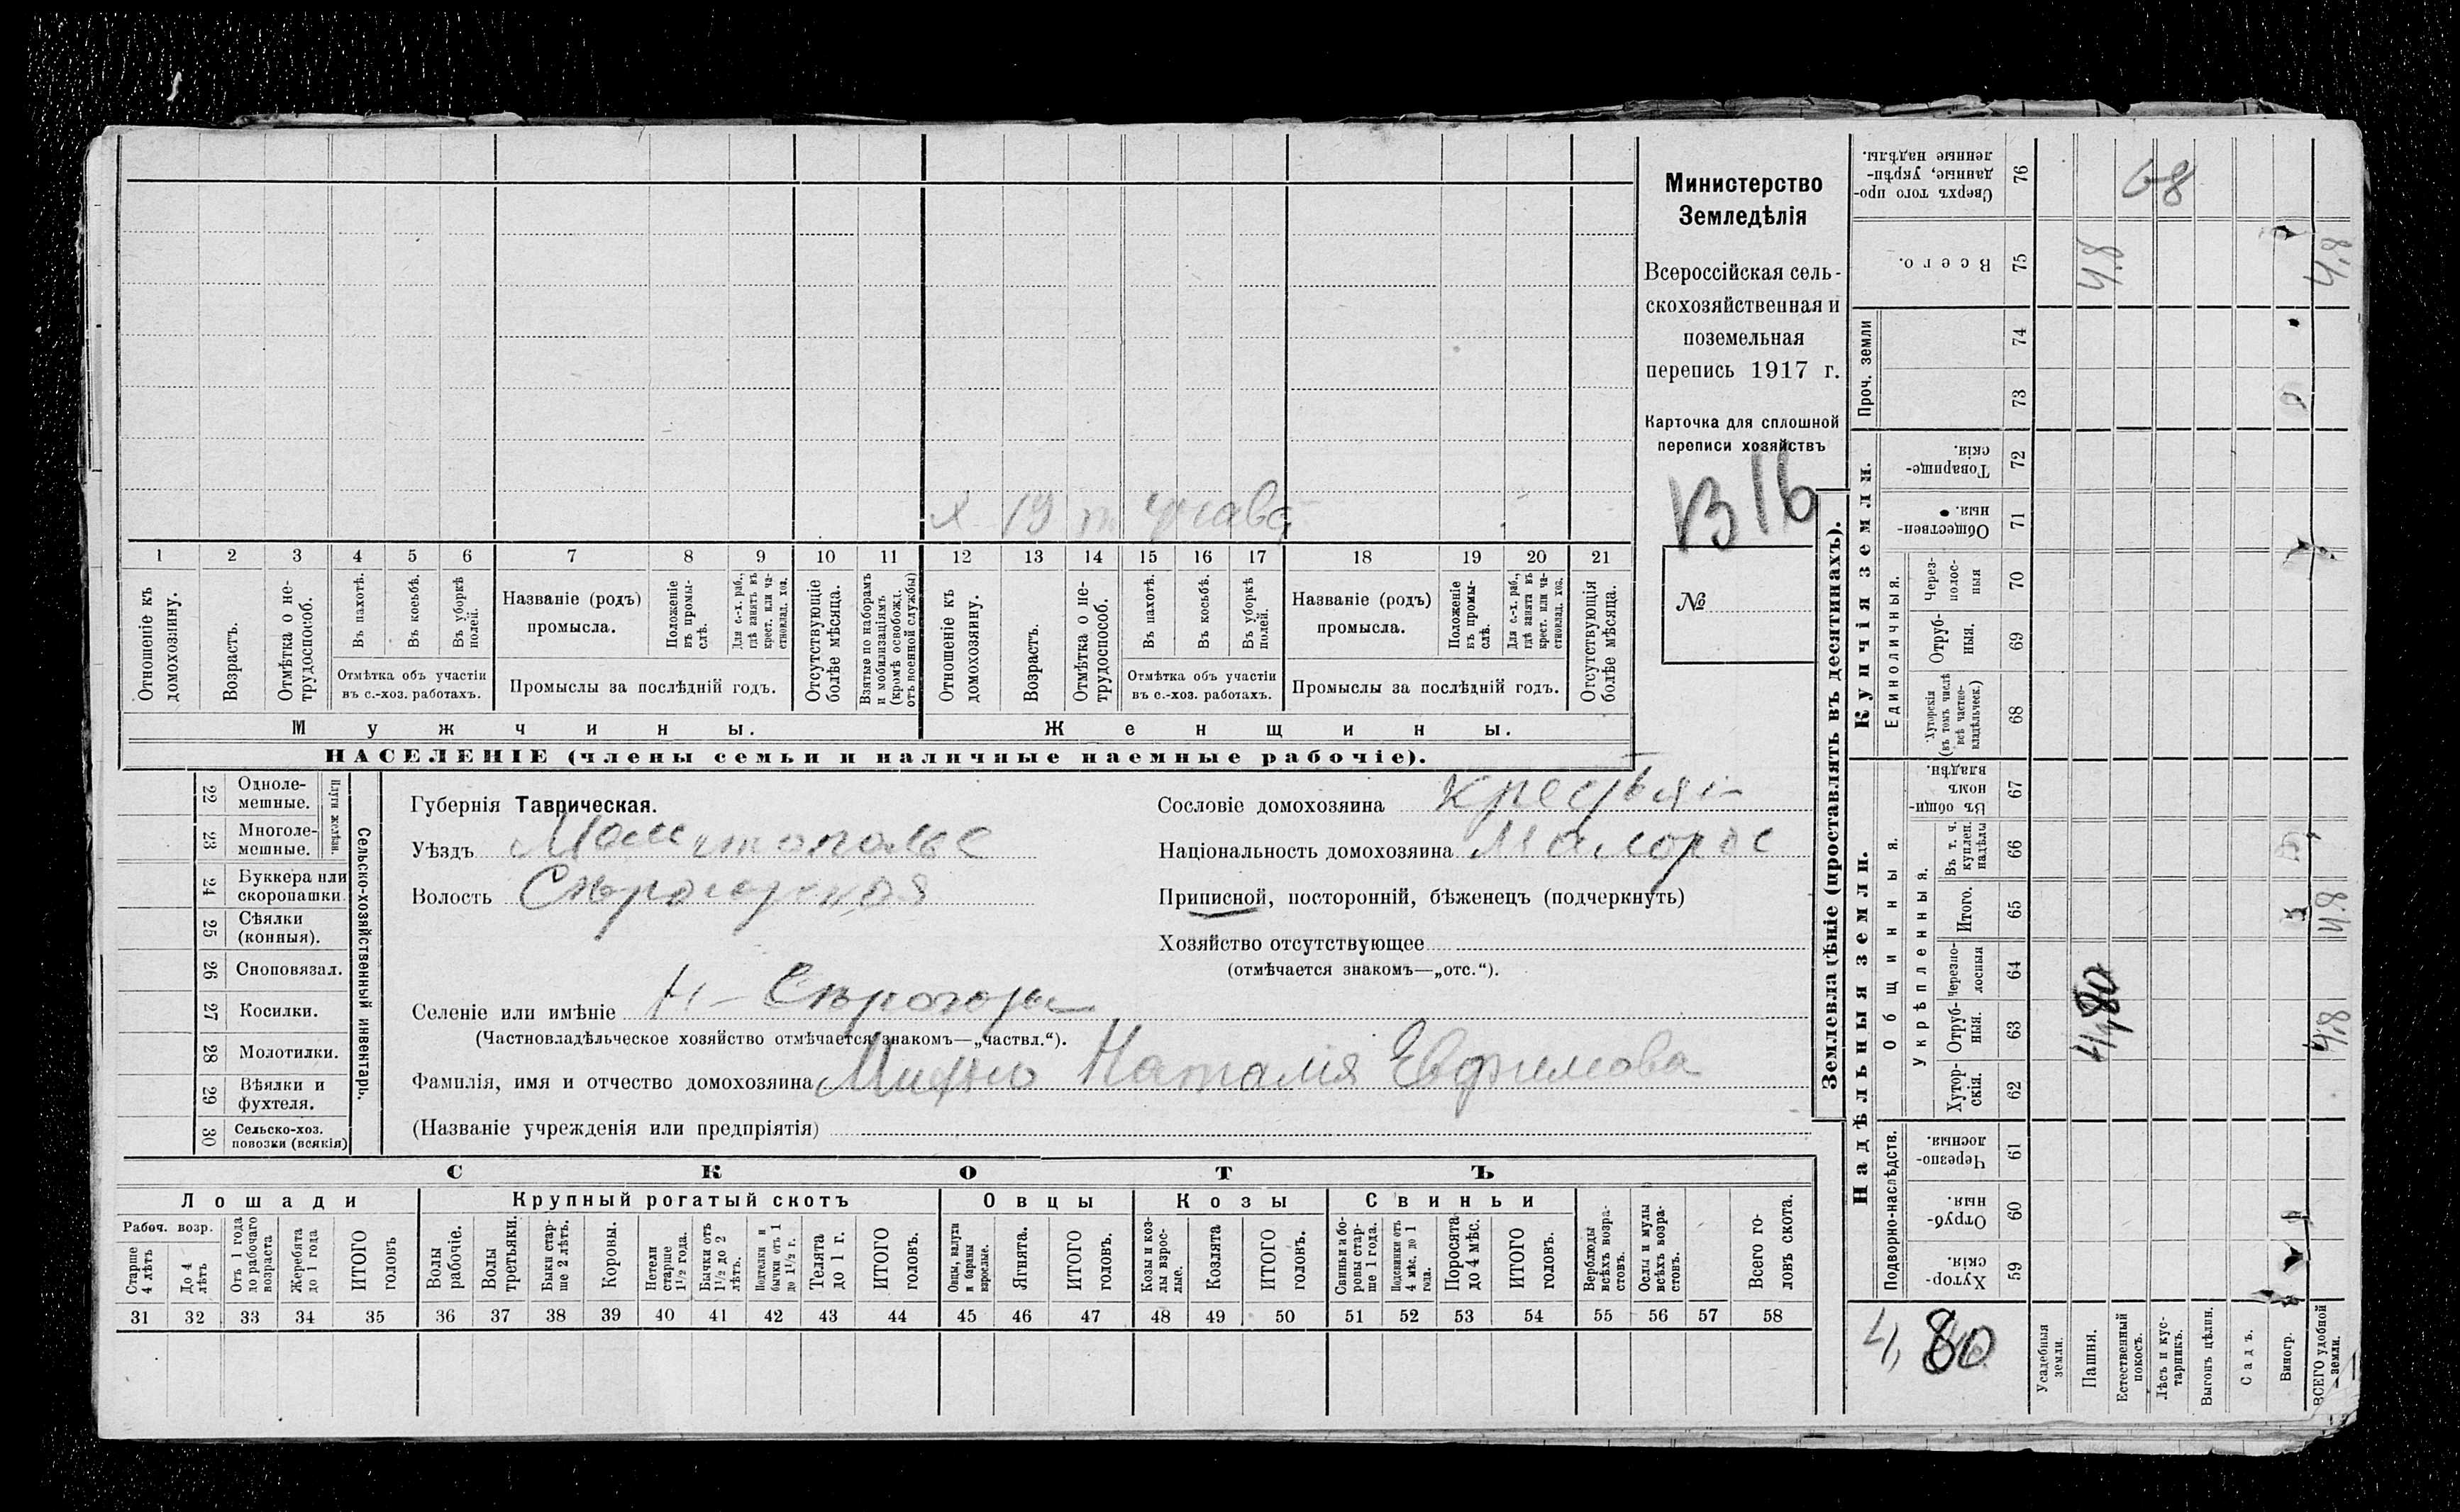 Министерство
Земледѣлія
Всероссійская сель-
скохозяйственная и
поземельная
перепись 1917 г.
Карточка для сплошной
переписи хозяйствъ
В 16
№
х 19
1 2 3 4 5 6 7 8 9 10 11 12 13 14 15 16 17 18 19 20 21
Отношеніе къ домохозяину.
Возрастъ.
Отмѣтка о не-трудоспособ.
Въ пахотѣ.
Въ косьбѣ.
Въ уборкѣ полей.
Отмѣтка объ участіи
въ с.-хоз. работахъ.
Названіе (родъ)
промысла.
Положеніе въ промы-слѣ.
Для с.-х. раб., гдѣ занятъ въ крест. или ча-стновлад. хоз.
Промыслы за послѣдній годъ.
Отсутствующіе болѣе мѣсяца.
Взятые по наборамъ и мобилизаціямъ (кромѣ освобожд. отъ военной службы)
Отношеніе къ домохозяину.
Возрастъ.
Отмѣтка о не-трудоспособ.
Въ пахотѣ.
Въ косьбѣ.
Въ уборкѣ полей.
Отмѣтка объ участіи
въ с.-хоз. работахъ.
Названіе (родъ)
промысла.
Положеніе въ промы-слѣ.
Для с.-х. раб., гдѣ занята въ крест. или ча-стновлад. хоз.
Промыслы за послѣдній годъ.
Отсутствующія болѣе мѣсяца.
Мужчины.
Женщины.
НАСЕЛЕНІЕ (члены семьи и наличные наемные рабочіе).
22 Одноле-мешные.
23 Многоле-мешные.
Плуги желѣзн.
24 Буккера или скоропашки
25 Сѣялки (конныя).
26 Сноповязал.
27 Косилки.
28 Молотилки.
29 Вѣялки и фухтеля.
30 Сельско-хоз. повозки (всякія)
Сельско-хозяйственный инвентарь.
Губернія Таврическая.
Уѣздъ
Волость
Селеніе или имѣніе Н-Сѣрогозы
(Частновладѣльческое хозяйство отмѣчается знакомъ—„частвл.“).
Фамилія, имя и отчество домохозяина Наталія Евфимова
(Названіе учрежденія или предпріятія)
Сословіе домохозяина крестьян
Національность домохозяина Малорос
Приписной, посторонній, бѣженецъ (подчеркнуть)
Хозяйство отсутствующее
(отмѣчается знакомъ—„отс.“).
СКОТЪ
Лошади
Крупный рогатый скотъ
Овцы
Козы
Свиньи
Рабоч. возр.
Старше 4 лѣтъ
До 4 лѣтъ
Отъ 1 года до рабочаго возраста
Жеребята до 1 года
ИТОГО головъ
Волы рабочіе.
Волы третьяки.
Быки стар-ше 2 лѣтъ.
Коровы.
Нетели старше 1½ года.
Бычки отъ 1½ до 2 лѣтъ.
Подтелки и бычки отъ 1 до 1½ г.
Телята до 1 г.
ИТОГО головъ.
Овцы, валухи и бараны взрослые.
Ягнята.
ИТОГО головъ.
Козы и коз-лы взрос-лые.
Козлята
ИТОГО головъ.
Свиньи и бо-ровы стар-ше 1 года.
Подсвинки отъ 4 мѣс. до 1 года.
Поросята до 4 мѣс.
ИТОГО головъ.
Верблюды всѣхъ возра-стовъ.
Ослы и мулы всѣхъ возра-стовъ.
Всего го-ловъ скота.
31 32 33 34 35 36 37 38 39 40 41 42 43 44 45 46 47 48 49 50 51 52 53 54 55 56 57 58
Землевладѣніе (проставлять въ десятинахъ).
Сверхъ того про-данные, укрѣп-ленные надѣлы. 76
68
Всего. 75
4,8
4,8
Проч. земли
74
73
Купчія земли.
Товарище-скія. 72
Обществен-ныя. 71
Единоличныя.
Через-полос-ныя 70
Отруб-ныя. 69
Хуторскія (въ томъ числѣ всѣ частно-владѣльческ.) 68
Надѣльныя земли.
Общинныя.
Въ общи-номъ владѣн. 67
Укрѣпленныя.
Въ т. ч. куплен. надѣлы 66
Итого. 65
4,8
Черезпо-лосныя 64
Отруб-ныя. 63
4,80
4,8
Хутор-скія. 62
Подворно-наслѣдств.
Черезпо-лосныя. 61
Отруб-ныя. 60
Хутор-скія. 59
4,80
Усадебныя земли.
Пашня.
Естественный покосъ.
Лѣсъ и кус-тарникъ.
Выгонъ цѣлин.
Садъ.
Виногр.
ВСЕГО удобной земли.